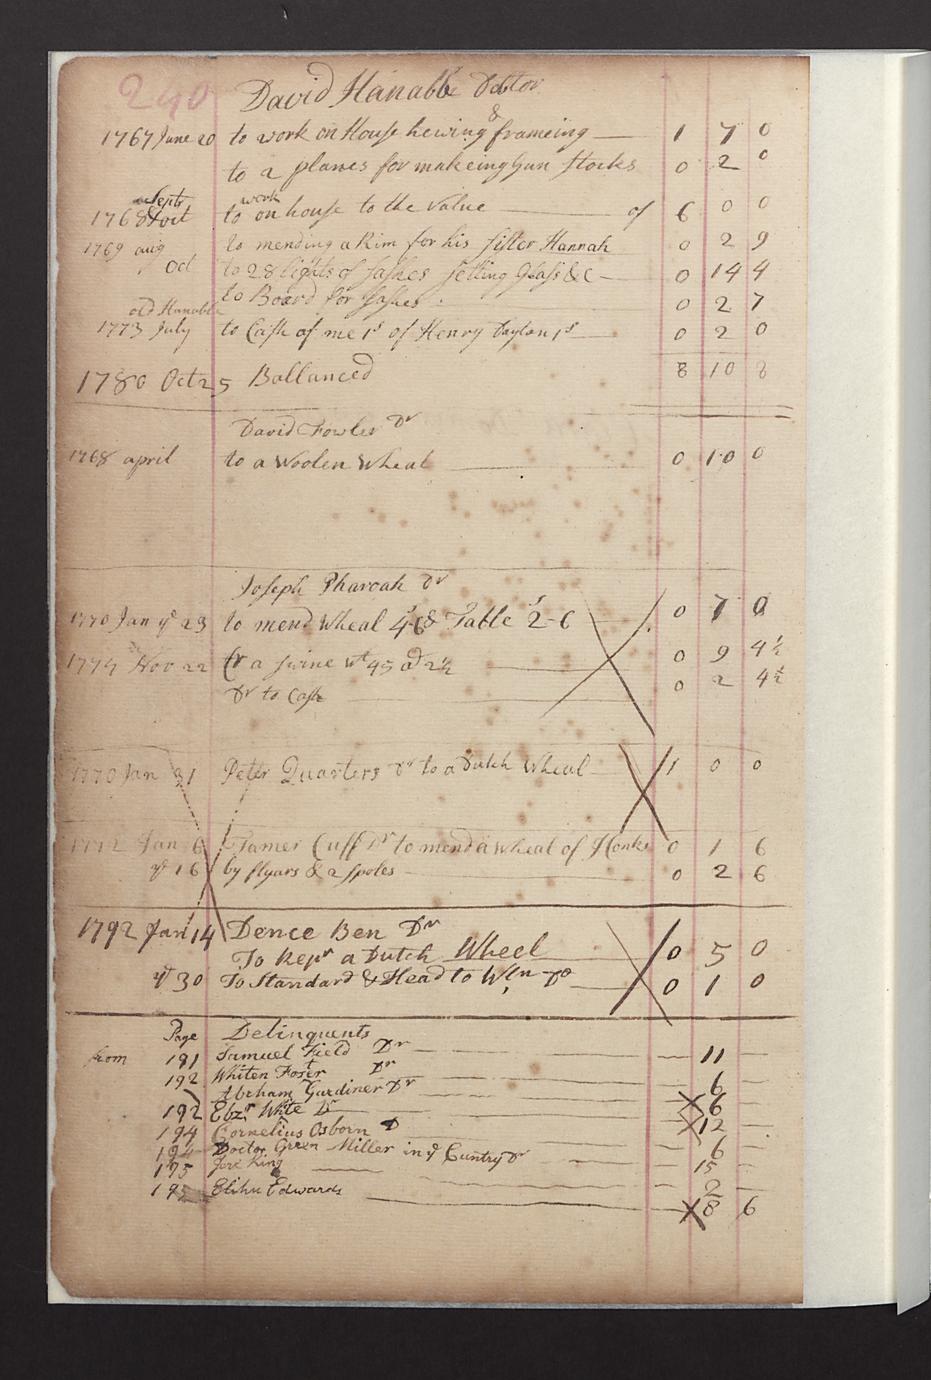 240 David Hanabb Debtor
1767 June 20 to work on House hewing & frameing 1 7 0
to 2 planes for makeing Gun Stocks 0 2 0
Sept
work
1768 & oct to on house to the Value of 6 0 0
1769 aug to mending a Rim for his sister Hannah 0 2 9
Oct to 28 lights of sashes setting Glass &c 0 14 4
to Board for sashes 0 2 7
old Hanabb
1773 July to Cash of me 1s of Henry Dayton 1s 0 2 0
1780 Oct 25 Ballanced 8 10 8
David Fowler Dr
1768 april to a Woolen Wheal 0 10 0
Joseph Pharoah Dr
1770 Jan ye 23 to mend Wheal 4-6 & Table 2-6 0 7 0
1774 Nov 22 Cr a swine wt 45 a 2½ 0 9 4½
Dr to Cash 0 2 4½
1770 Jan 31 Peter Quarters Dr to a Dutch Wheal 1 0 0
1772 Jan 6 Jamer Cuff Dr to mend a wheal of Honks 0 1 6
ye 16 by flyars & 2 spoles 0 2 6
1792 Jan 14 Dence Ben Dr
To Repr a Dutch Wheel 0 5 0
ye 30 To Standard & Head to Wln Do 0 1 0
Page Delinquents
from 191 Samuel Field Dr 11
192 Whiten Foster Dr 6
Abraham Gardiner Dr 6
192 Ebzr White Dr 12
194 Cornelius Osborn D 6
194 Doctor Green Miller in ye Cuntry Dr 15
195 King 2
195 Elihu Edwards 8 6